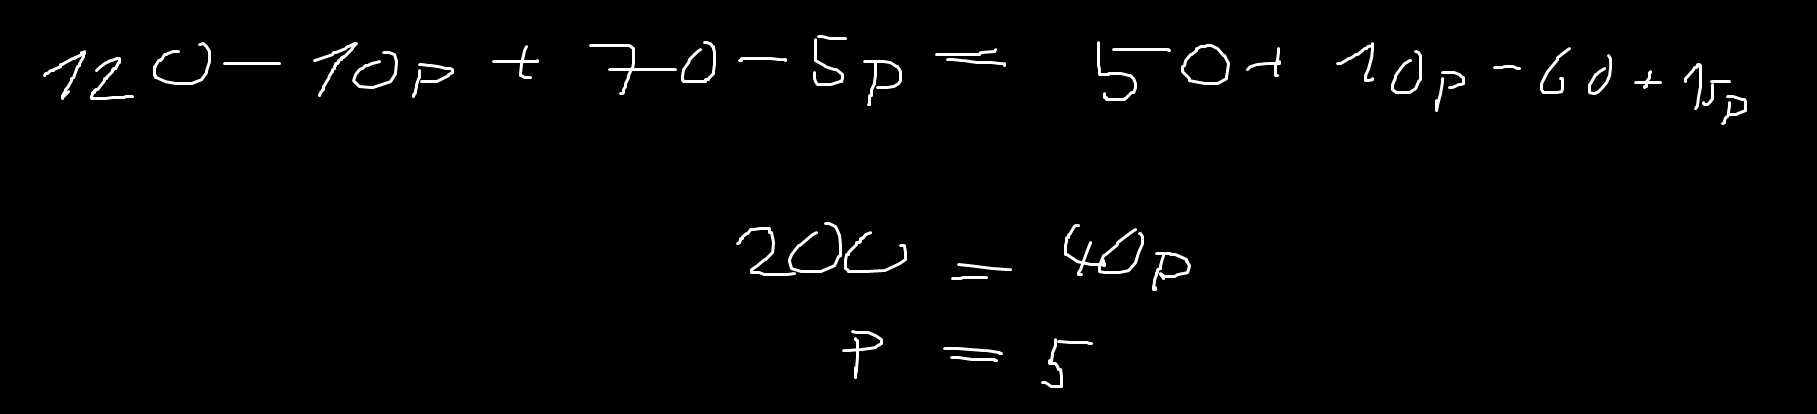 120 - 10p + 70 - 5p = 50 + 10p - 60 + 15p
200 = 40p
P = 5